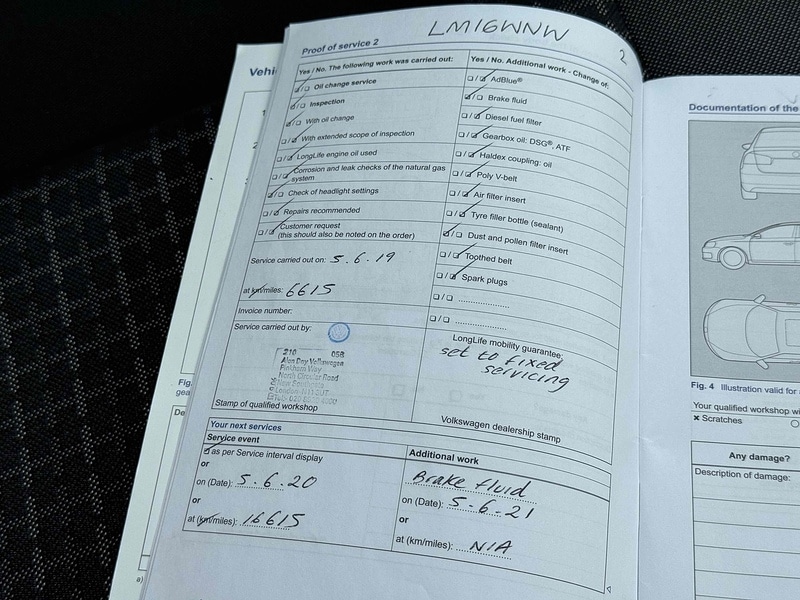 LM16WNW
2
Proof of service 2
Vehi
Yes / No. The following work was carried out:
Oil change service
Inspection
With oil change
With extended scope of inspection
LongLife engine oil used
Corrosion and leak checks of the natural gas
system
Check of headlight settings
Repairs recommended
Customer request
(this should also be noted on the order)
Service carried out on: 5.6.19
at km/miles: 6615
Invoice number:
Service carried out by:
210 058
Alan Day Volkswagen
Pinkham Way
North Circular Road
New Southgate
Stamp of qualified workshop
Yes / No. Additional work - Change of:
AdBlue®
Brake fluid
Diesel fuel filter
Gearbox oil: DSG®, ATF
Haldex coupling: oil
Poly V-belt
Air filter insert
Tyre filler bottle (sealant)
Dust and pollen filter insert
Toothed belt
Spark plugs
LongLife mobility guarantee:
set to fixed
servicing
Volkswagen dealership stamp
Your next services
Service event
as per Service interval display
or
on (Date): 5.6.20
or
at (km/miles): 16615
Additional work
Brake fluid
on (Date): 5-6-21
or
at (km/miles): N/A
Fig.
gea
De
a)
Documentation of the
Fig. 4 Illustration valid for
Your qualified workshop wi
× Scratches
Any damage?
Description of damage: